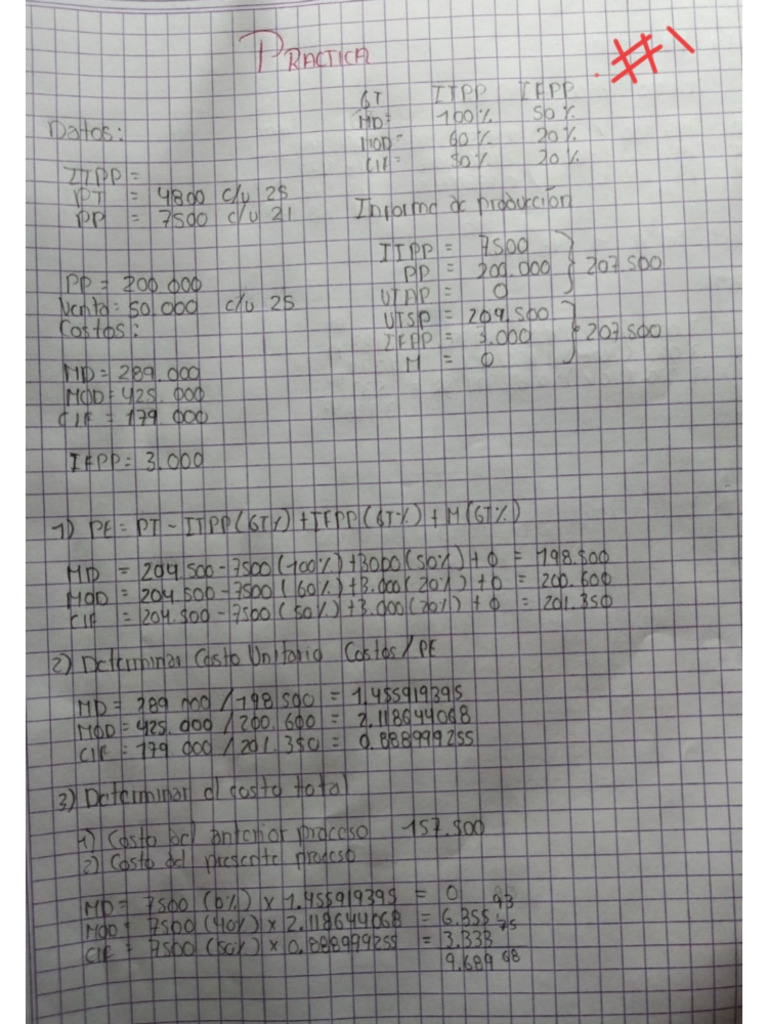 PRACTICA
#1
GT ITPP IFPP
MD= 100% 50%
MOD= 60% 20%
CIF= 50% 20%
Datos:
ITPP=
PT = 4800 c/u 25
PP = 7500 c/u 21
Informe de producción
ITPP = 7500
PP = 200.000
207.500
UTAP = 0
UTSP = 204.500
IFPP = 3.000
207.500
M = 0
PP = 200 000
Venta = 50.000 c/u 25
Costos:
MD = 289.000
MOD = 425.000
CIF = 179 000
IFPP = 3.000
1) PE = PT - ITPP(GT%) + IFPP(GT%) + M(GT%)
MD = 204 500 - 7500(100%) + 3000(50%) + 0 = 198.500
MOD = 204.500 - 7500(60%) + 3.000(20%) + 0 = 200.600
CIF = 204.500 - 7500(50%) + 3.000(20%) + 0 = 201.350
2) Determinar Costo Unitario Costos/PE
MD = 289 000 / 198 500 = 1.455919395
MOD = 425.000 / 200 600 = 2.118644068
CIF = 179 000 / 201.350 = 0.888999255
3) Determinar el costo total
1) Costo del anterior proceso 157.500
2) Costo del presente proceso
MD = 7500 (0%) x 1.455919395 = 0
MOD = 7500 (40%) x 2.118644068 = 6.355 93
CIF = 7500 (50%) x 0.888999255 = 3.333 75
9.689 68